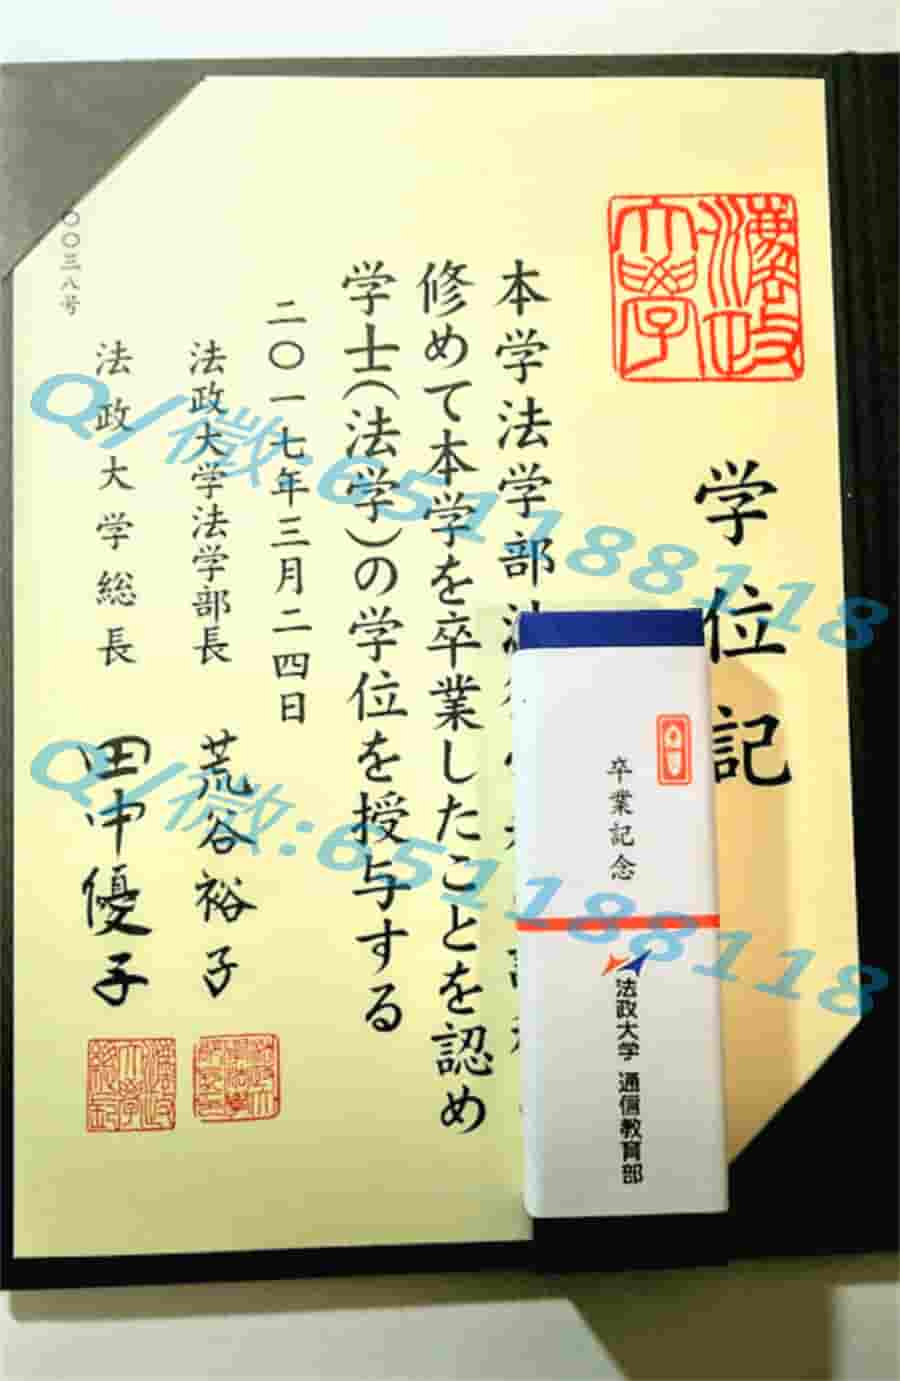 学位記
本学法学部法
修めて本学を卒業したことを認め
学士(法学)の学位を授与する
二〇一七年三月二四日
法政大学法学部長 荒谷裕子
法政大学総長 田中優子
〇〇三八号
卒業記念
法政大学 通信教育部
Q/微:651188118
Q/微:651188118